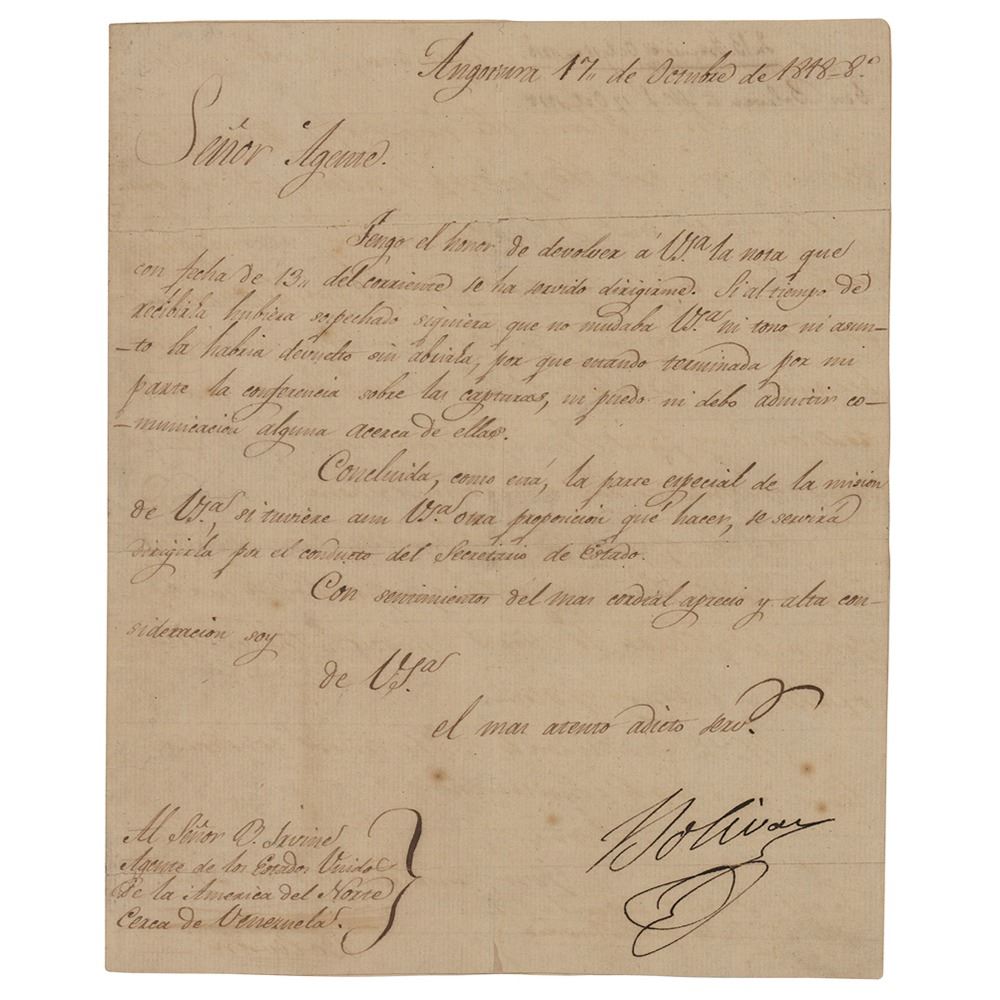 Angostura 17,, de Octubre de 1818-8.º
Señor Agente.
Tengo el honor de devolver á VS.ª la nota que
con fecha de 13,, del corriente se ha servido dirigirme. Si al tiempo de
recibirla hubiera sospechado siquiera que no mudaba VS.ª ni tono ni asun-
-to la habria devuelto sin abrirla, por que estando terminada por mi
parte la conferencia sobre las capturas, ni puedo ni debo admitir co-
-municacion alguna acerca de ellas.
Concluida, como está, la parte especial de la mision
de VS.ª, si tuviere aun VS.ª otra proposicion que hacer, se servirá
dirigirla por el conducto del Secretario de Estado.
Con sentimientos del mas cordial aprecio y alta con-
sideracion soy
de VS.ª
el mas atento adicto serv.r
Bolivar
Al Señor B. Irvine
Agente de los Estados Unidos
de la America del Norte
Cerca de Venezuela.